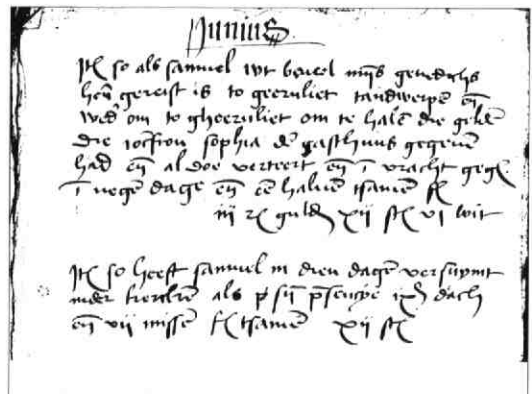 Junius
Itē so als samuel wt bevel mijs genedichs
hen̄ gereist is to geervliet tandwerpē eñ
wed' om to gheervliet om te halē die geldē
die iocfrou sophia dē gasthuus gegevē
had eñ al doe verteert eñ ī vracht gegē
ī negē dage eñ eē halvē tsamē f
iij r guldē xij st vi wit
Itē so heeft samuel in drien dagē versuymt
inder kerckē als p sij psencye dach
eñ vij missē tsamē xij st